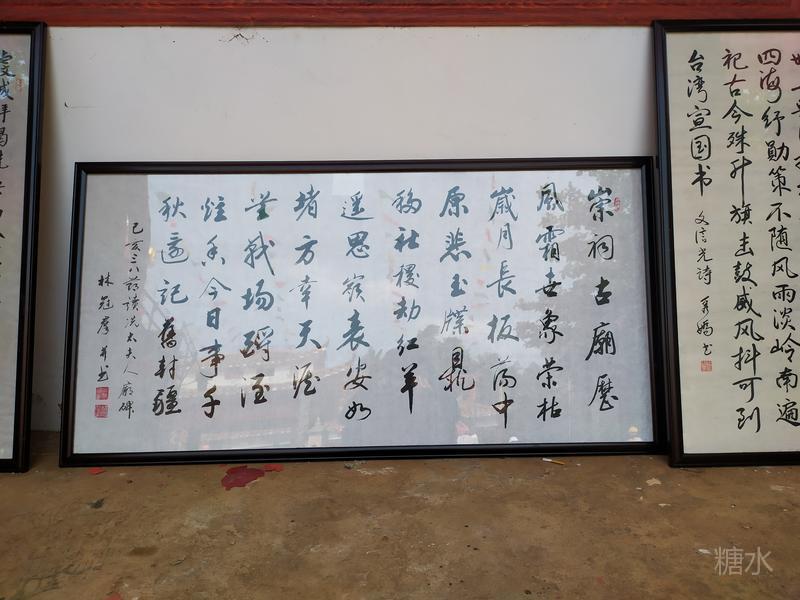 崇祠古廟歷
風霜世象荣枯
嵗月長板蕩中
原悲玉牒
移社稷劫红羊
遥思嶺表安如
堵方幸天涯
戰場蹄涅
炷香今日事千
秋遗記舊封疆
己亥三八節读冼太夫人廟碑
林冠
四海纾勋策不随风雨淡岭南遍
祀古今殊升旗击鼓威风抖可到
台湾宣国书
文信光诗
糖水